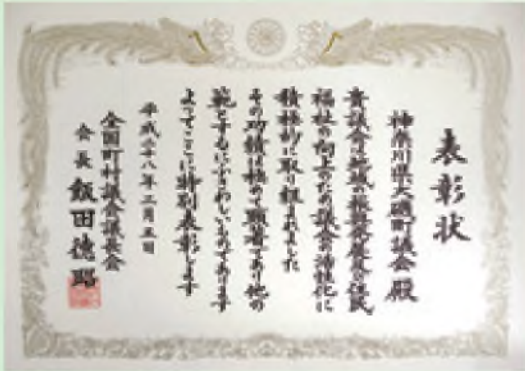 表彰状
神奈川県大磯町議会 殿
貴議会は地域の振興発展及び住民
福祉の向上のため議会の活性化に
積極的に取り組まれました
その功績は極めて顕著であり他の
範とするにふさわしいものであります
よってここに特別表彰します
平成二十八年二月五日
全国町村議会議長会
会長 飯田徳昭